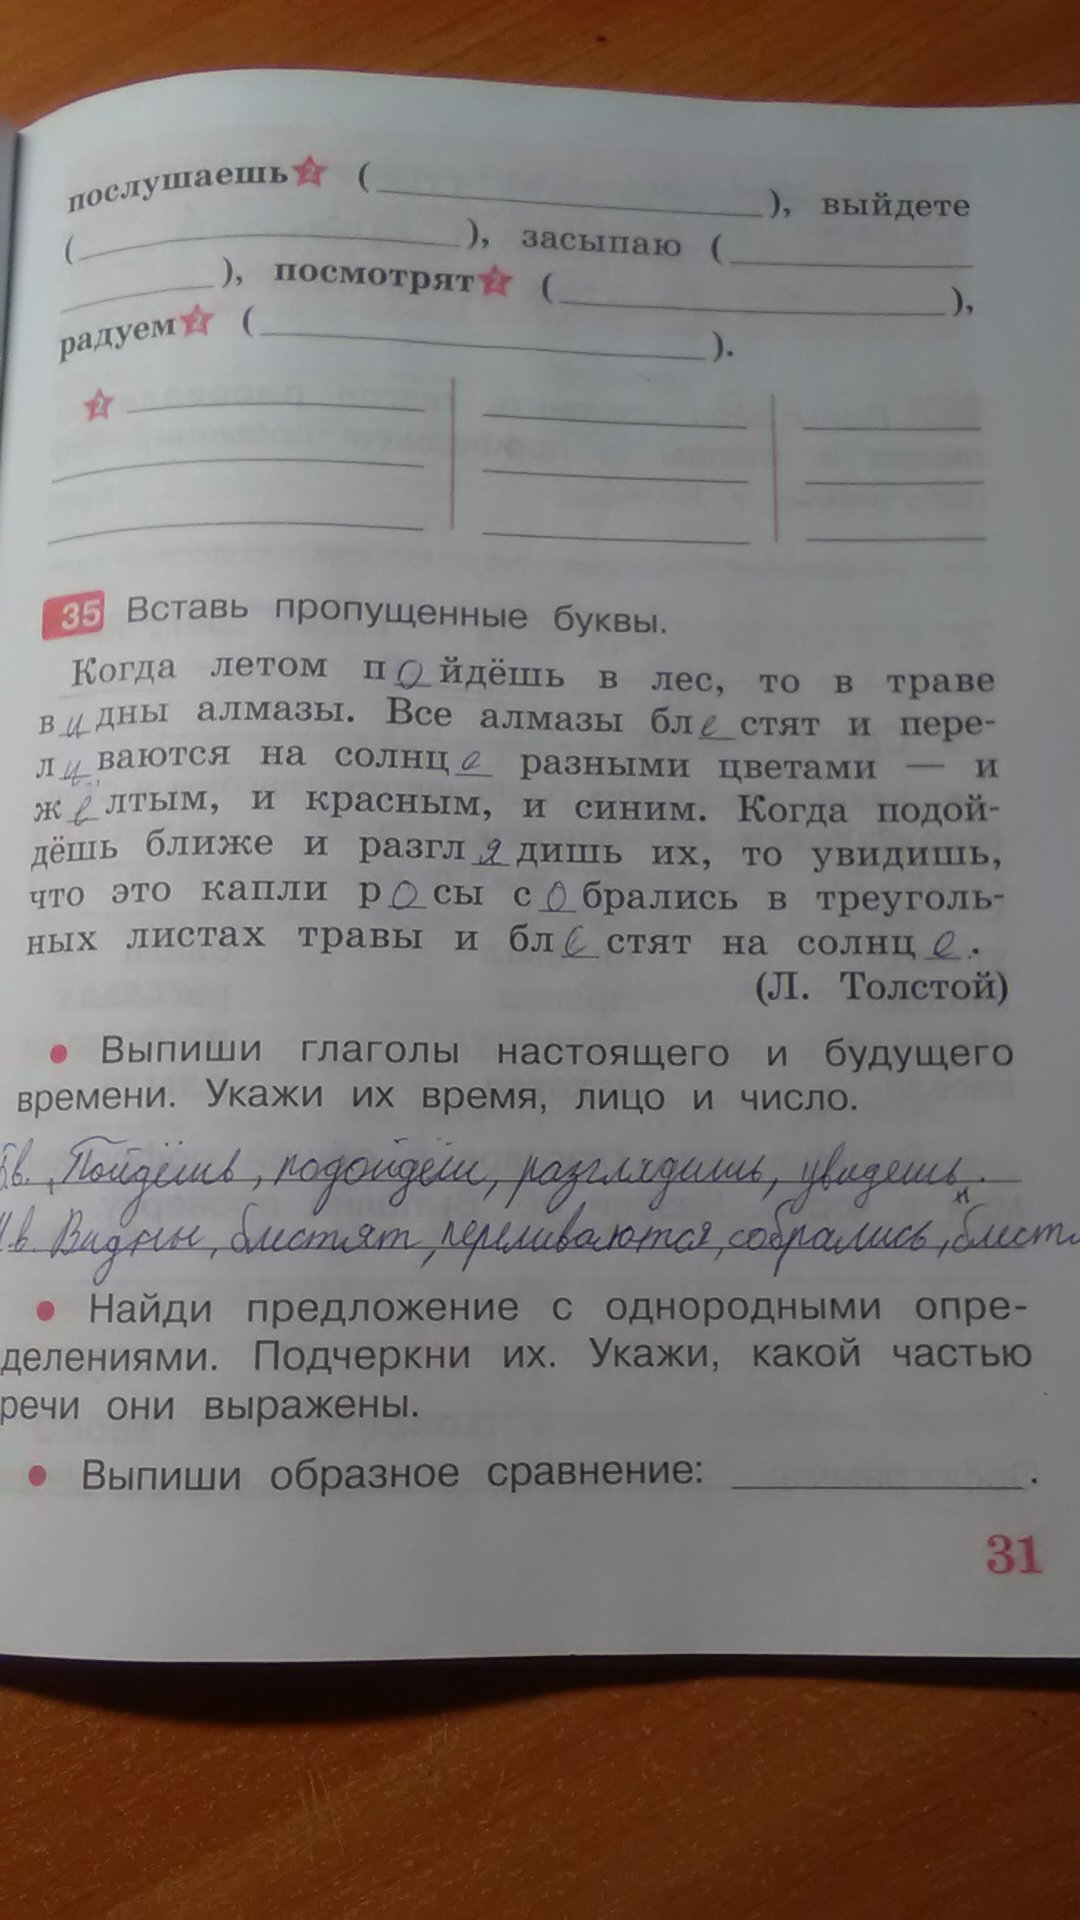 послушаешь2 (____________), выйдете
(____________), засыпаю (____________
________), посмотрят2 (____________),
радуем2 (____________).
2
35 Вставь пропущенные буквы.
Когда летом пойдёшь в лес, то в траве
видны алмазы. Все алмазы блестят и пере-
ливаются на солнце разными цветами — и
жёлтым, и красным, и синим. Когда подой-
дёшь ближе и разглядишь их, то увидишь,
что это капли росы собрались в треуголь-
ных листах травы и блестят на солнце.
(Л. Толстой)
• Выпиши глаголы настоящего и будущего
времени. Укажи их время, лицо и число.
Б.в. Пойдёшь, подойдёш, разглядишь, увидешь.
в. Видны, блестят, переливаются, собрались, блестя
• Найди предложение с однородными опре-
делениями. Подчеркни их. Укажи, какой частью
речи они выражены.
• Выпиши образное сравнение: ____________.
31